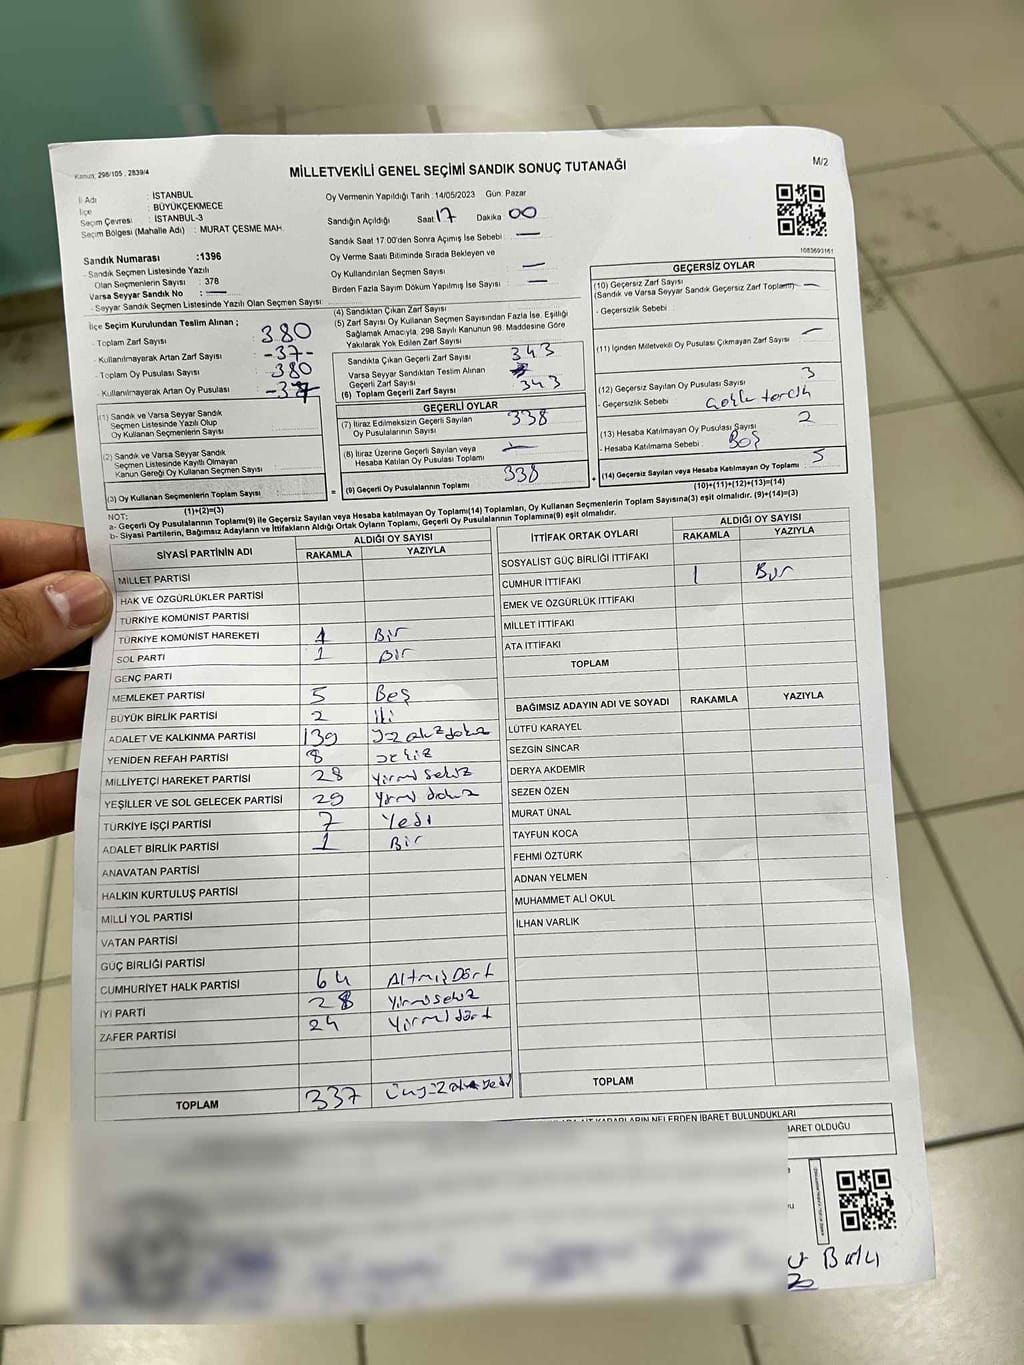 Kanun; 298/105 , 2839/4
MİLLETVEKİLİ GENEL SEÇİMİ SANDIK SONUÇ TUTANAĞI
M/2
İl Adı : İSTANBUL
İlçe : BÜYÜKÇEKMECE
Seçim Çevresi : İSTANBUL-3
Seçim Bölgesi (Mahalle Adı) : MURAT ÇESME MAH.
Oy Vermenin Yapıldığı Tarih :14/05/2023 Gün: Pazar
Sandığın Açıldığı Saat 17 Dakika 00
Sandık Saat 17.00'den Sonra Açımış İse Sebebi : —
Oy Verme Saati Bitiminde Sırada Bekleyen ve
Oy Kullandırılan Seçmen Sayısı : —
Birden Fazla Sayım Döküm Yapılmış İse Sayısı : —
1083693161
Sandık Numarası :1396
- Sandık Seçmen Listesinde Yazılı
Olan Seçmenlerin Sayısı : 378
Varsa Seyyar Sandık No : —
- Seyyar Sandık Seçmen Listesinde Yazılı Olan Seçmen Sayısı
İlçe Seçim Kurulundan Teslim Alınan ;
- Toplam Zarf Sayısı : 380
- Kullanılmayarak Artan Zarf Sayısı : -37-
- Toplam Oy Pusulası Sayısı : 380
- Kullanılmayarak Artan Oy Pusulası : -37
(1) Sandık ve Varsa Seyyar Sandık
Seçmen Listesinde Yazılı Olup
Oy Kullanan Seçmenlerin Sayısı
(2) Sandık ve Varsa Seyyar Sandık
Seçmen Listesinde Kayıtlı Olmayan
Kanun Gereği Oy Kullanan Seçmen Sayısı
(3) Oy Kullanan Seçmenlerin Toplam Sayısı
(1)+(2)=(3)
(4) Sandıktan Çıkan Zarf Sayısı
(5) Zarf Sayısı Oy Kullanan Seçmen Sayısından Fazla İse, Eşitliği
Sağlamak Amacıyla, 298 Sayılı Kanunun 98. Maddesine Göre
Yakılarak Yok Edilen Zarf Sayısı
Sandıkta Çıkan Geçerli Zarf Sayısı 343
Varsa Seyyar Sandıktan Teslim Alınan
Geçerli Zarf Sayısı
(6) Toplam Geçerli Zarf Sayısı 343
GEÇERLİ OYLAR
(7) İtiraz Edilmeksizin Geçerli Sayılan
Oy Pusulasının Sayısı 338
(8) İtiraz Üzerine Geçerli Sayılan veya
Hesaba Katılan Oy Pusulası Toplamı —
(9) Geçerli Oy Pusulalarının Toplamı 338
GEÇERSİZ OYLAR
(10) Geçersiz Zarf Sayısı
(Sandık ve Varsa Seyyar Sandık Geçersiz Zarf Toplamı) —
- Geçersizlik Sebebi
(11) İçinden Milletvekili Oy Pusulası Çıkmayan Zarf Sayısı —
(12) Geçersiz Sayılan Oy Pusulası Sayısı 3
- Geçersizlik Sebebi
(13) Hesaba Katılmayan Oy Pusulası Sayısı 2
- Hesaba Katılmama Sebebi : Boş
(14) Geçersiz Sayılan veya Hesaba Katılmayan Oy Toplamı 5
(10)+(11)+(12)+(13)=(14)
NOT:
a- Geçerli Oy Pusulalarının Toplamı(9) ile Geçersiz Sayılan veya Hesaba katılmayan Oy Toplamı(14) Toplamları, Oy Kullanan Seçmenlerin Toplam Sayısına(3) eşit olmalıdır. (9)+(14)=(3)
b- Siyasi Partilerin, Bağımsız Adayların ve İttifakların Aldığı Ortak Oyların Toplamı, Geçerli Oy Pusulalarının Toplamına(9) eşit olmalıdır.
SİYASİ PARTİNİN ADI ALDIĞI OY SAYISI
RAKAMLA YAZIYLA
MİLLET PARTİSİ
HAK VE ÖZGÜRLÜKLER PARTİSİ
TÜRKİYE KOMÜNİST PARTİSİ
TÜRKİYE KOMÜNİST HAREKETİ 1 Bir
SOL PARTİ 1 Bir
GENÇ PARTİ
MEMLEKET PARTİSİ 5 Beş
BÜYÜK BİRLİK PARTİSİ 2 İki
ADALET VE KALKINMA PARTİSİ 139
YENİDEN REFAH PARTİSİ 8 sekiz
MİLLİYETÇİ HAREKET PARTİSİ 28 Yirmi sekiz
YEŞİLLER VE SOL GELECEK PARTİSİ 29 Yirmi dokuz
TÜRKİYE İŞÇİ PARTİSİ 7 Yedi
ADALET BİRLİK PARTİSİ 1 Bir
ANAVATAN PARTİSİ
HALKIN KURTULUŞ PARTİSİ
MİLLİ YOL PARTİSİ
VATAN PARTİSİ
GÜÇ BİRLİĞİ PARTİSİ
CUMHURİYET HALK PARTİSİ 64 Altmış Dört
İYİ PARTİ 28 Yirmi sekiz
ZAFER PARTİSİ 24 Yirmi dört
TOPLAM 337
İTTİFAK ORTAK OYLARI ALDIĞI OY SAYISI
RAKAMLA YAZIYLA
SOSYALİST GÜÇ BİRLİĞİ İTTİFAKI
CUMHUR İTTİFAKI 1 Bir
EMEK VE ÖZGÜRLÜK İTTİFAKI
MİLLET İTTİFAKI
ATA İTTİFAKI
TOPLAM
BAĞIMSIZ ADAYIN ADI VE SOYADI RAKAMLA YAZIYLA
LÜTFÜ KARAYEL
SEZGİN SİNCAR
DERYA AKDEMİR
SEZEN ÖZEN
MURAT ÜNAL
TAYFUN KOCA
FEHMİ ÖZTÜRK
ADNAN YELMEN
MUHAMMET ALİ OKUL
İLHAN VARLIK
TOPLAM
KARARLARIN NELERDEN İBARET BULUNDUKLARI
BARET OLDUĞU